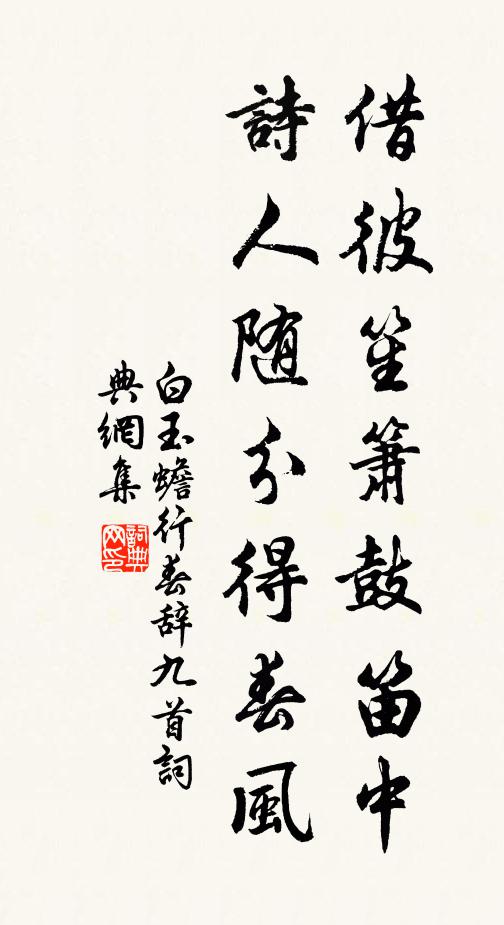 借彼笙簫鼓笛中
詩人随分得春風
白玉蟾行春辞九首詞
典網集
詞典網印